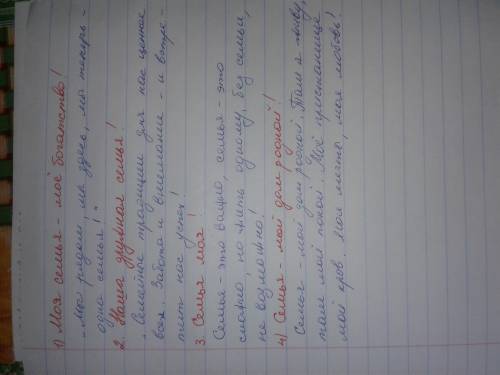 1) Моя семья - моё богатство!
„Мы рядом, мы здесь, мы теперь -
одна семья!"
2. Наша дружная семья!
„Семейные традиции для нас ценнее
всех. Забота и внимание - и встре-
тет нас успех!
3. Семья моя!
Семья - это важно, семья - это
сложно, но жить одному, без семьи,
не возможно!
4) Семья - мой дом родной!
Семья - мой дом родной. Там я живу,
там мой покой. Моё пристанище
мой кров моя мечта, моя любовь!